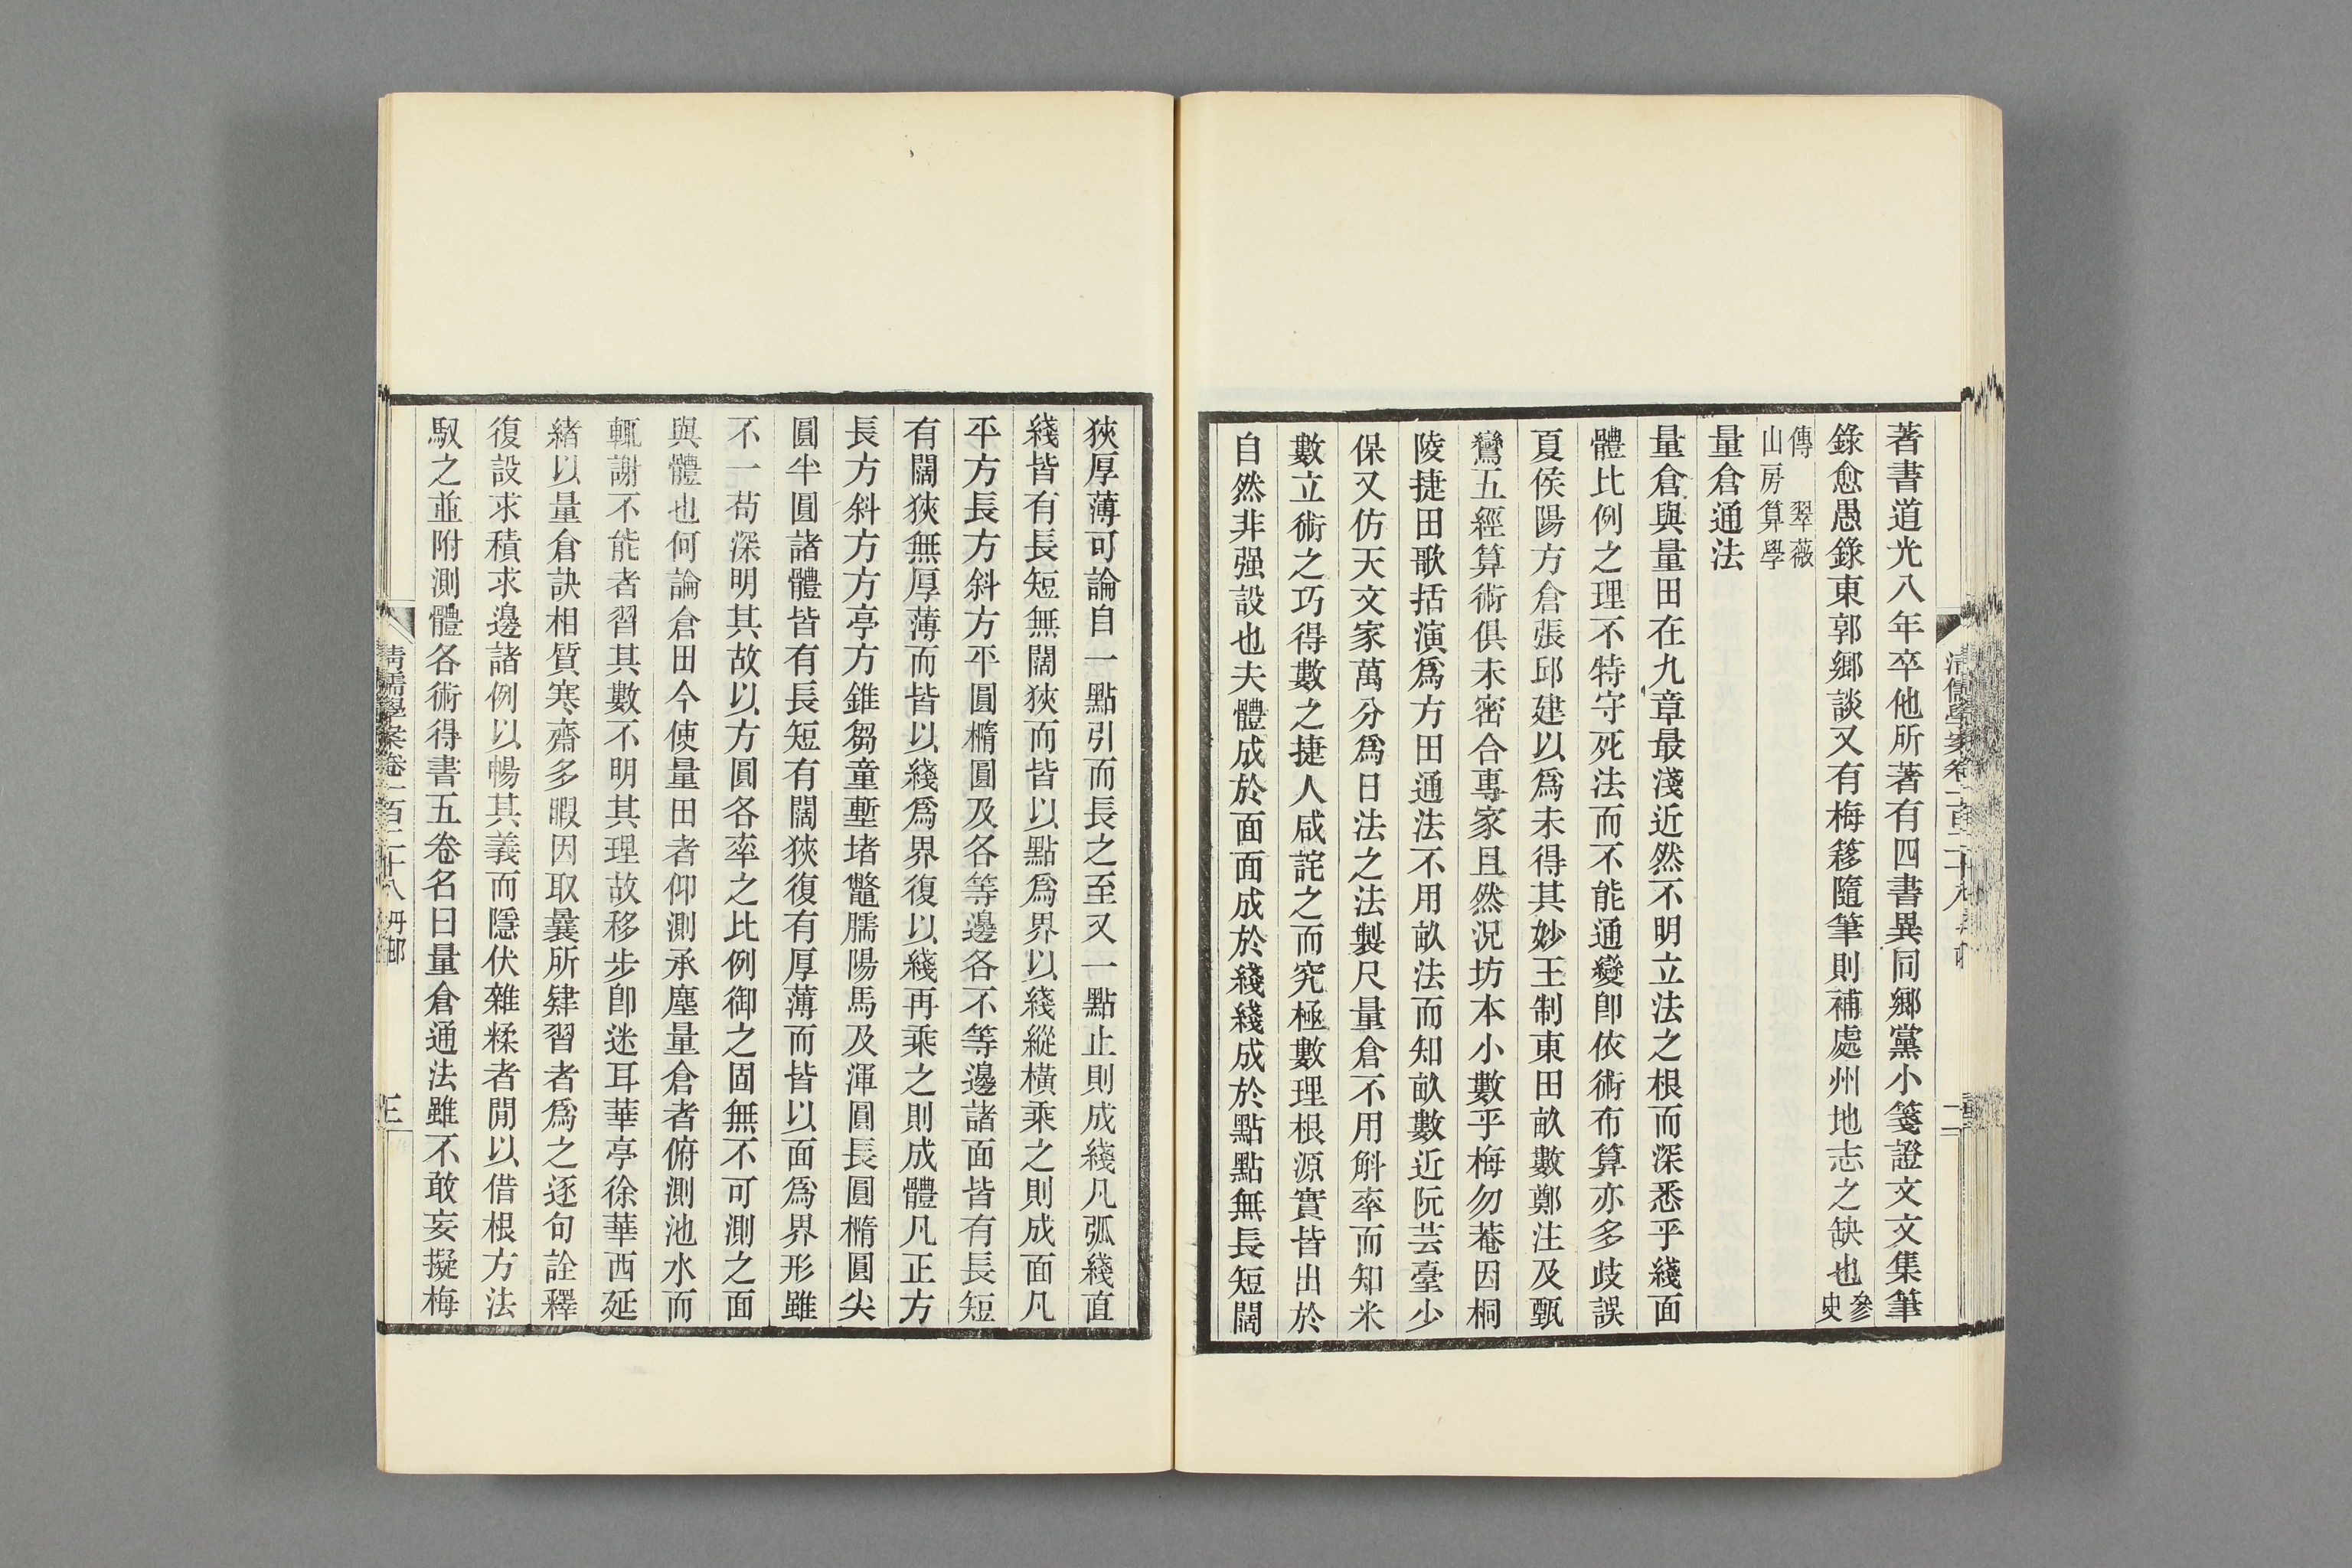 著書道光八年卒他所著有四書異同鄉黨小箋證文文集筆
錄愈愚錄東郭鄉談又有梅簃隨筆則補處州地志之缺也參史
傳翠薇山房算學
量倉通法
量倉與量田在九章最淺近然不明立法之根而深悉乎綫面
體比例之理不特守死法而不能通變卽依術布算亦多歧誤
夏侯陽方倉張邱建以爲未得其妙王制東田畝數鄭注及甄
鸞五經算術俱未密合專家且然況坊本小數乎梅勿菴因桐
陵捷田歌括演爲方田通法不用畝法而知畝數近阮芸臺少
保又仿天文家萬分爲日法之法製尺量倉不用斛率而知米
數立術之巧得數之捷人咸詫之而究極數理根源實皆出於
自然非强設也夫體成於面面成於綫綫成於點點無長短闊
狹厚薄可論自一點引而長之至又一點止則成綫凡弧綫直
綫皆有長短無闊狹而皆以點爲界以綫縱橫乘之則成面凡
平方長方斜方平圓橢圓及各等邊各不等邊諸面皆有長短
有闊狹無厚薄而皆以綫爲界復以綫再乘之則成體凡正方
長方斜方方亭方錐芻童塹堵鼈臑陽馬及渾圓長圓橢圓尖
圓半圓諸體皆有長短有闊狹復有厚薄而皆以面爲界形雖
不一苟深明其故以方圓各率之比例御之固無不可測之面
與體也何論倉田今使量田者仰測承塵量倉者俯測池水而
輒謝不能者習其數不明其理故移步卽迷耳華亭徐華西延
緒以量倉訣相質寒齋多暇因取曩所肄習者爲之逐句詮釋
復設求積求邊諸例以暢其義而隱伏雜糅者閒以借根方法
馭之並附測體各術得書五卷名曰量倉通法雖不敢妄擬梅
清儒學案卷一百二十八 丹邨
三